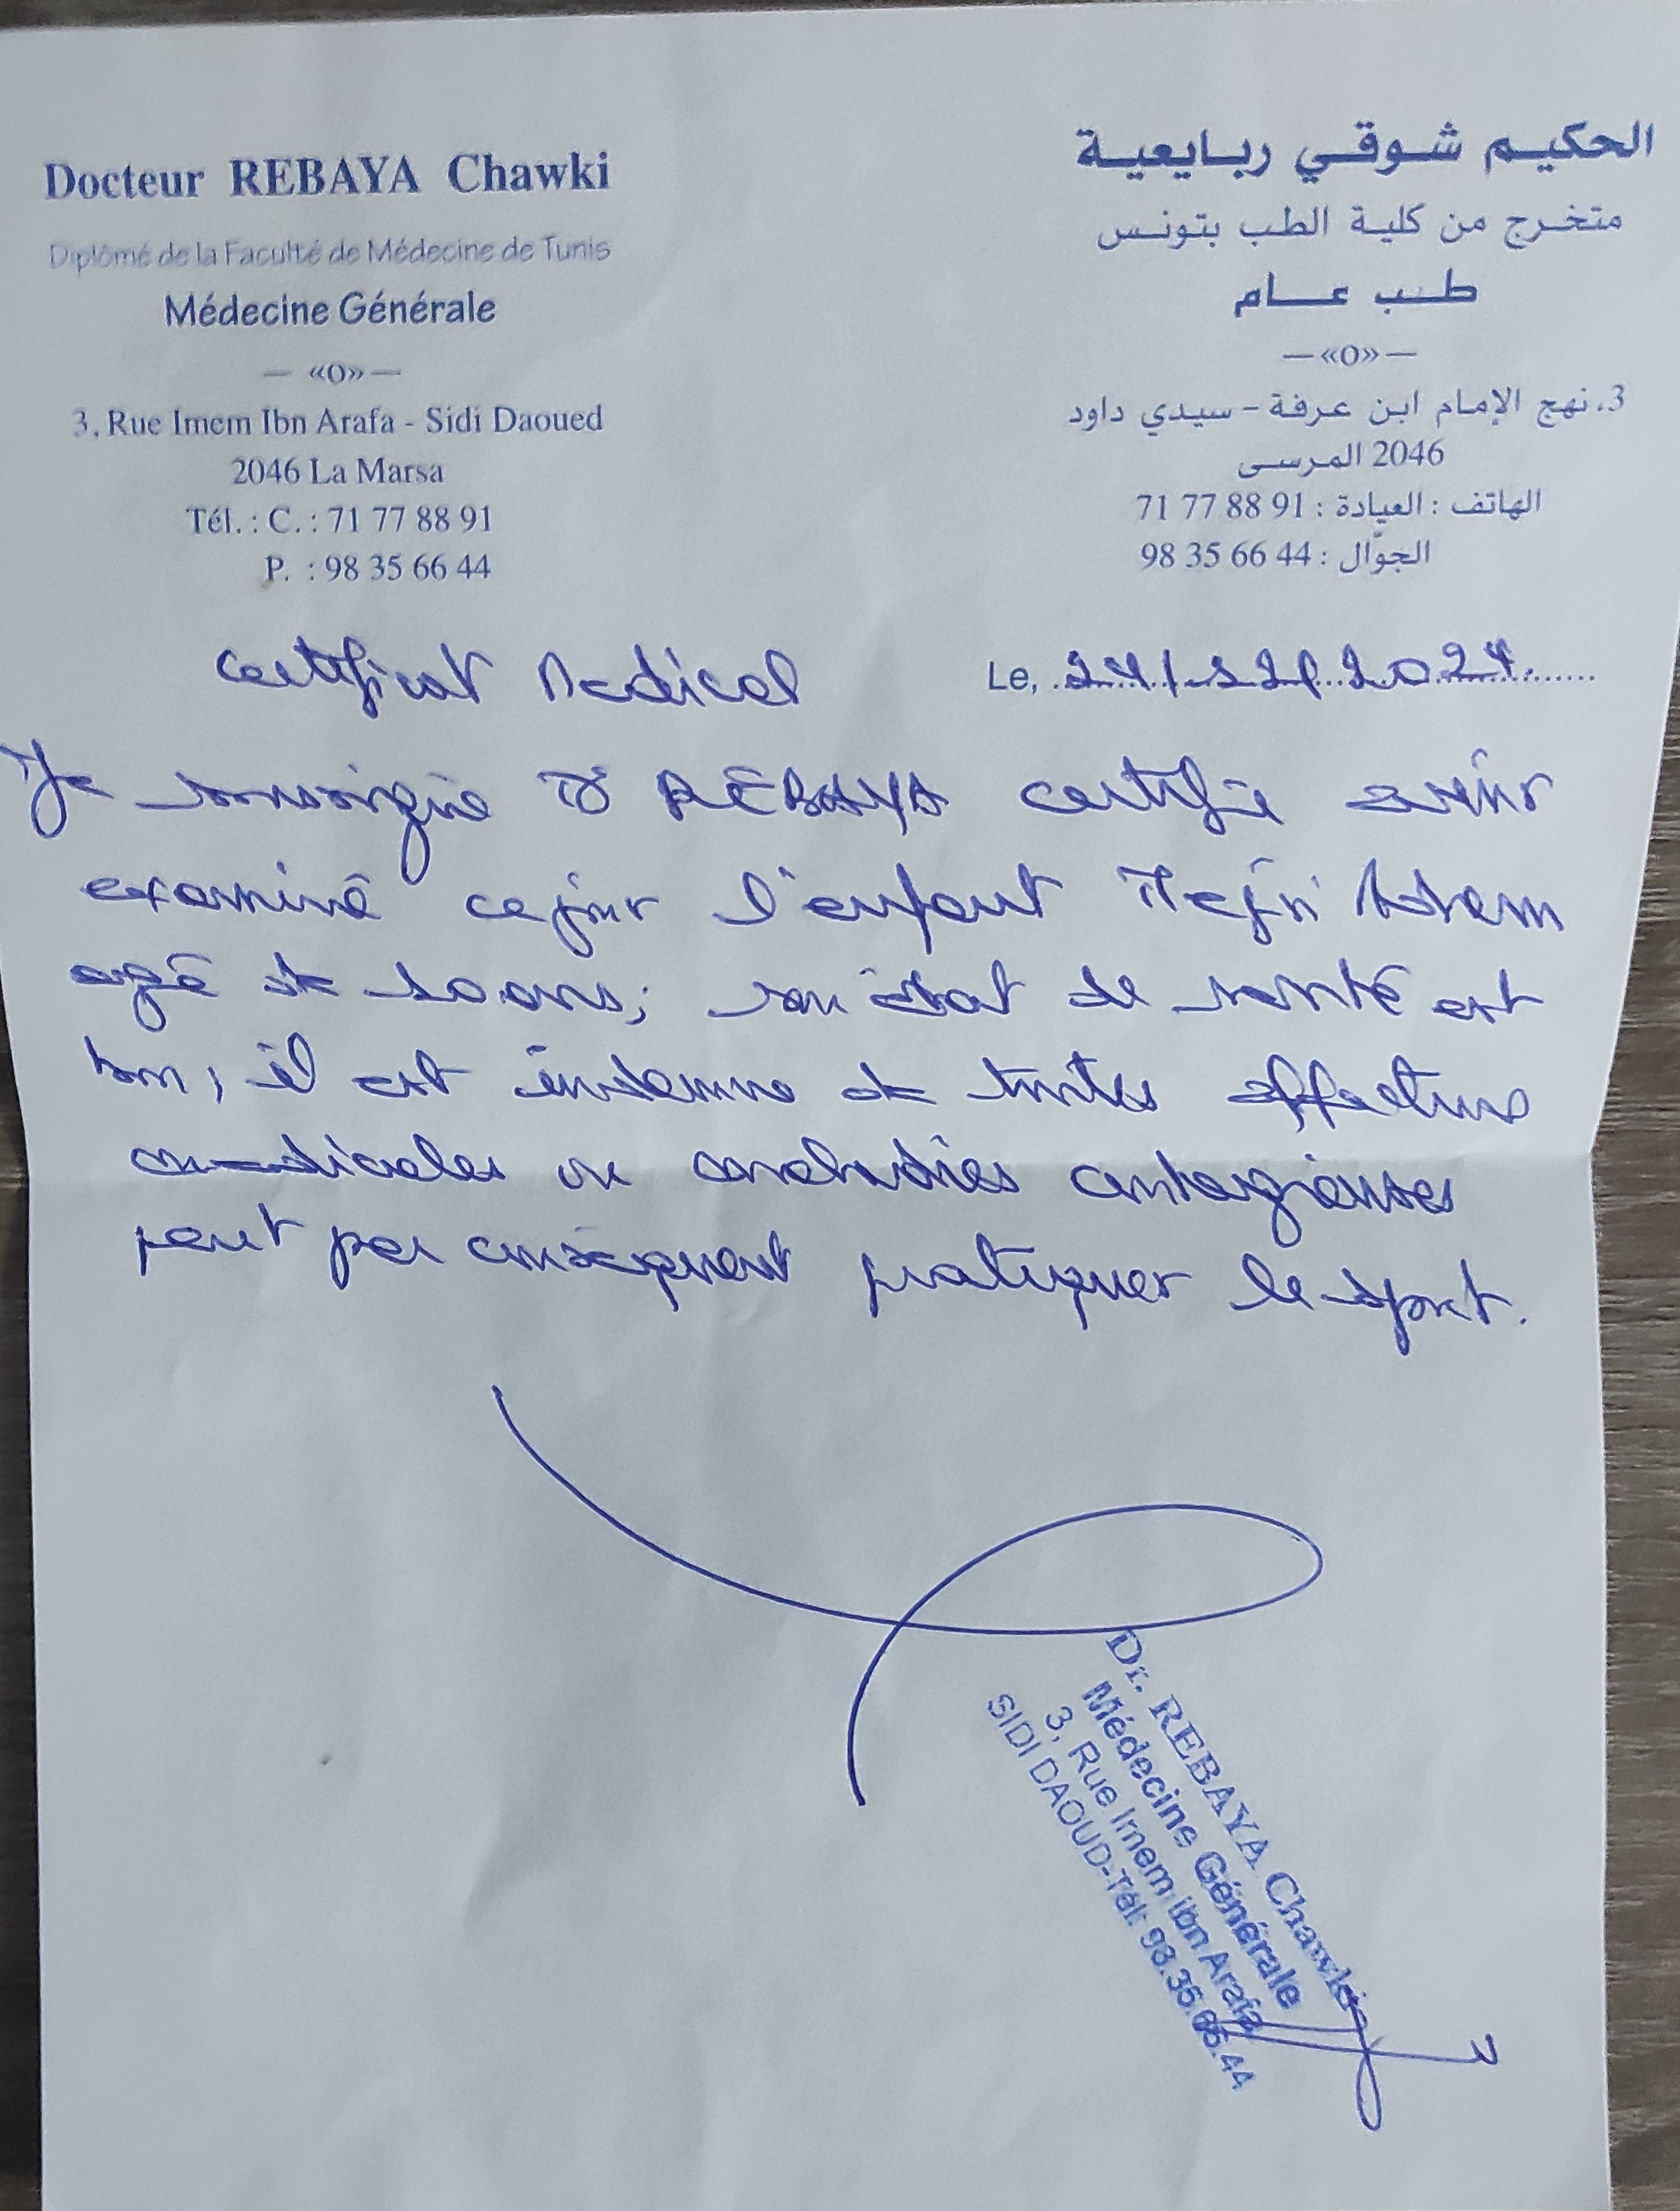 Docteur REBAYA Chawki
Diplômé de la Faculté de Médecine de Tunis
Médecine Générale
— «O» —
3, Rue Imem Ibn Arafa - Sidi Daoued
2046 La Marsa
Tél. : C. : 71 77 88 91
P. : 98 35 66 44
الحكيم شوقي ربايعية
متخرج من كلية الطب بتونس
طب عام
— «O» —
3، نهج الإمام ابن عرفة - سيدي داود
2046 المرسى
الهاتف : العيادة : 71 77 88 91
الجوّال : 98 35 66 44
Certificat Medical
Le, 24/12/2024
Je soussigné Dr REBAYA certifie avoir
examiné ce jour l'enfant Mejri Adem
agé de 10 ans; son état de santé est
bon; il est indemne de toutes affections
medicales ou maladies contagieuses
peut par conséquent pratiquer le sport.
Dr. REBAYA Chawki
Médecine Générale
3, Rue Imem Ibn Arafa
SIDI DAOUD-Tél: 98.35.66.44